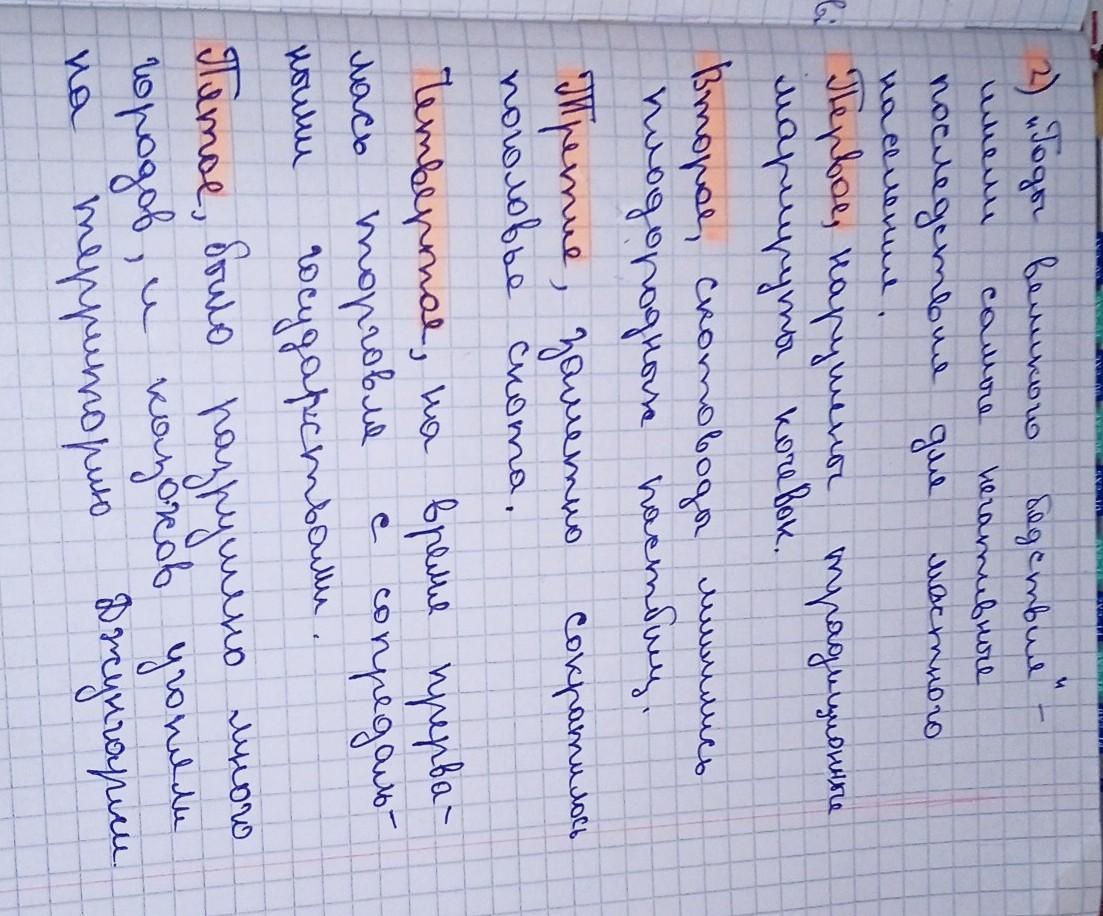 2) "Годы великого бедствия" -
имели самые негативные
последствия для местного
населения.
Первое, нарушены традиционные
маршруты кочевок.
Второе, скотовода лишились
плодородных пастбищ.
Третие, заметно сократилось
поголовье скота.
Четвертое, на время прерва-
лась торговля с сопредель-
ными государствами.
Пятое, было разрушено много
городов, и казахов угоняли
на территорию Джунгарии